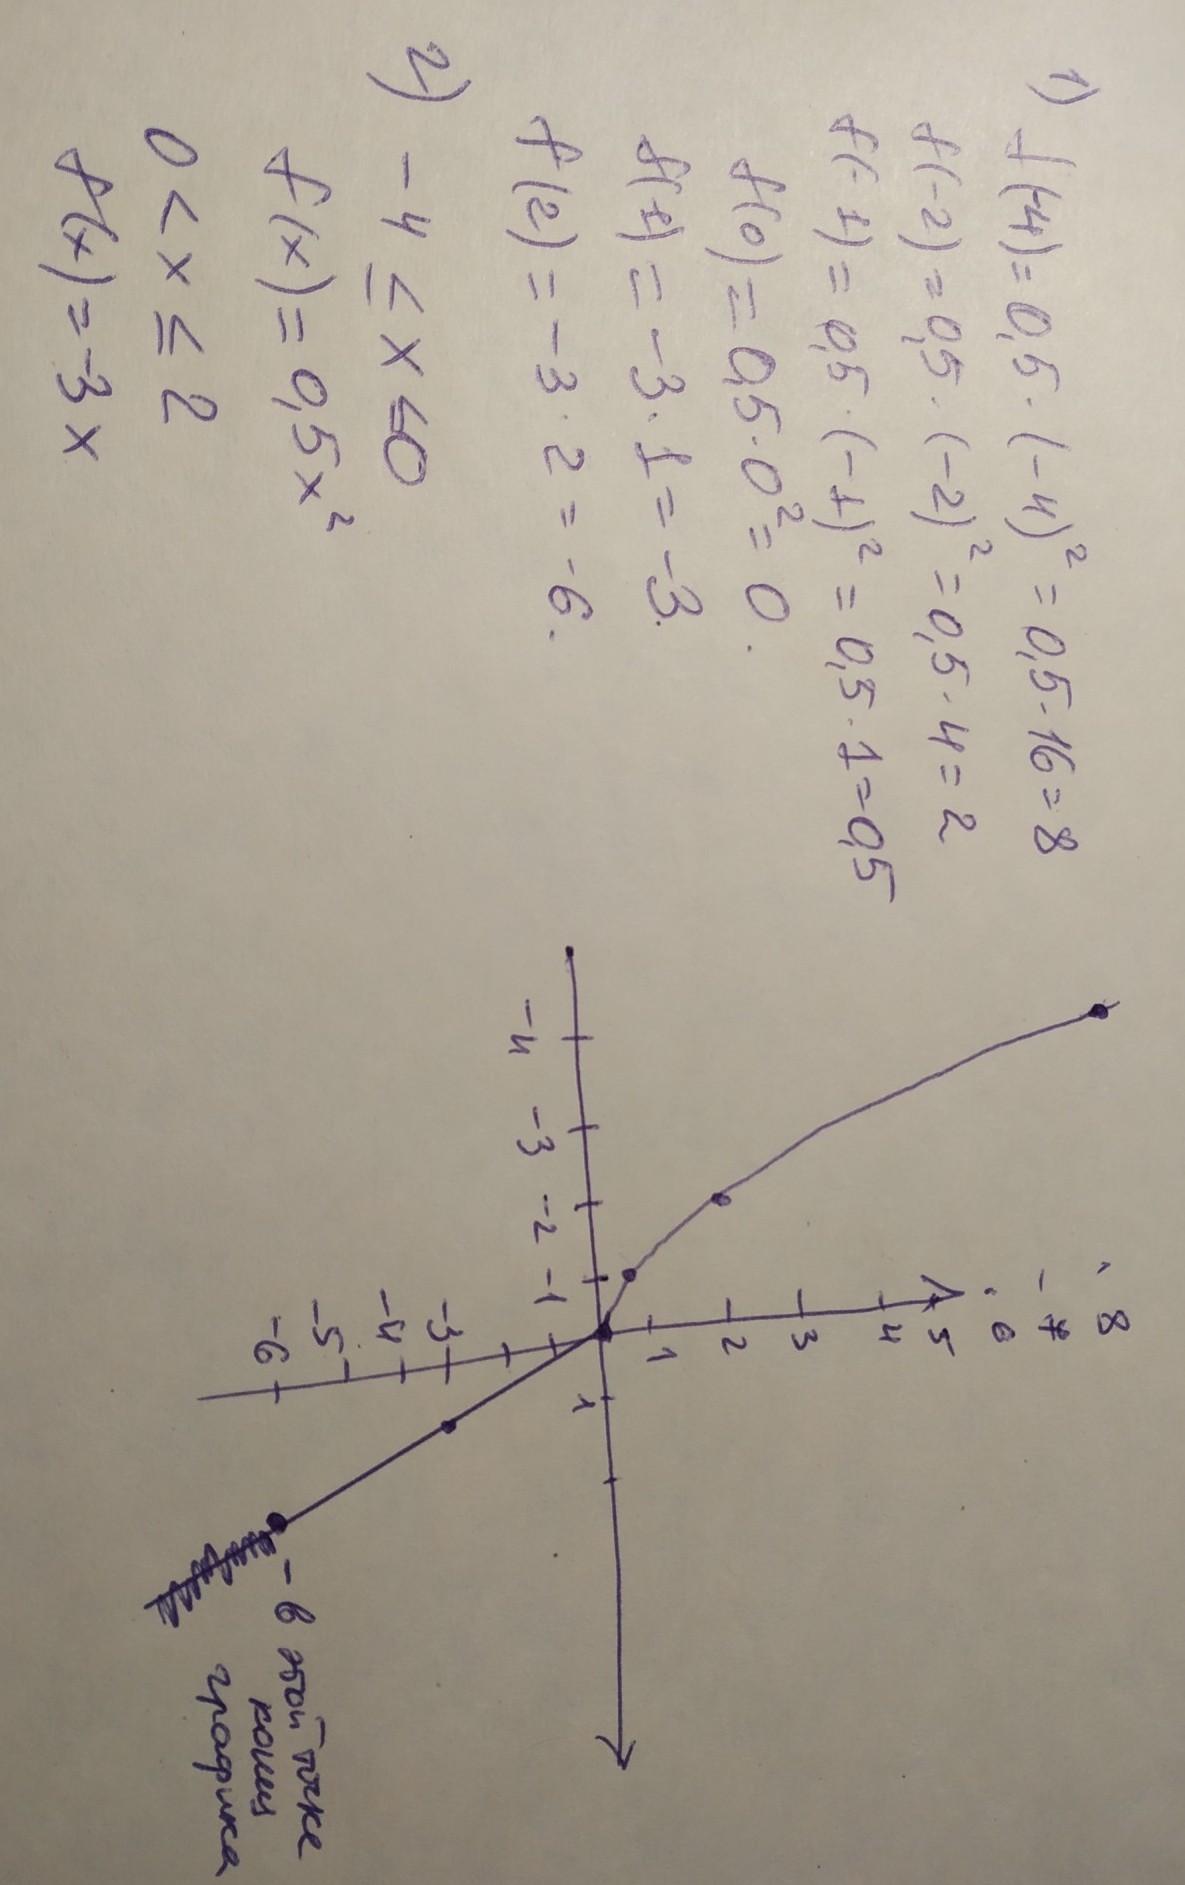 1) f(-4) = 0,5 · (-4)² = 0,5 · 16 = 8
f(-2) = 0,5 · (-2)² = 0,5 · 4 = 2
f(-1) = 0,5 · (-1)² = 0,5 · 1 = 0,5
f(0) = 0,5 · 0² = 0.
f(1) = -3 · 1 = -3.
f(2) = -3 · 2 = -6.
2) -4 ≤ x ≤ 0
f(x) = 0,5x²
0 < x ≤ 2
f(x) = -3x
8
7
6
5
4
3
2
1
-4 -3 -2 -1 1
-3
-4
-5
-6
- в этой точке
конец
графика